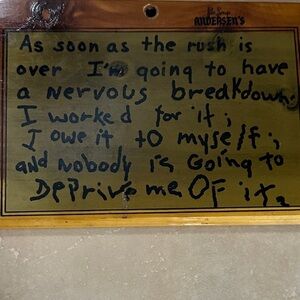 ANDERSEN'S
As soon as the rush is
over I'm going to have
a nervous breakdown.
I worked for it;
I owe it to myself;
and Nobody is Going to
Deprive me OF it.